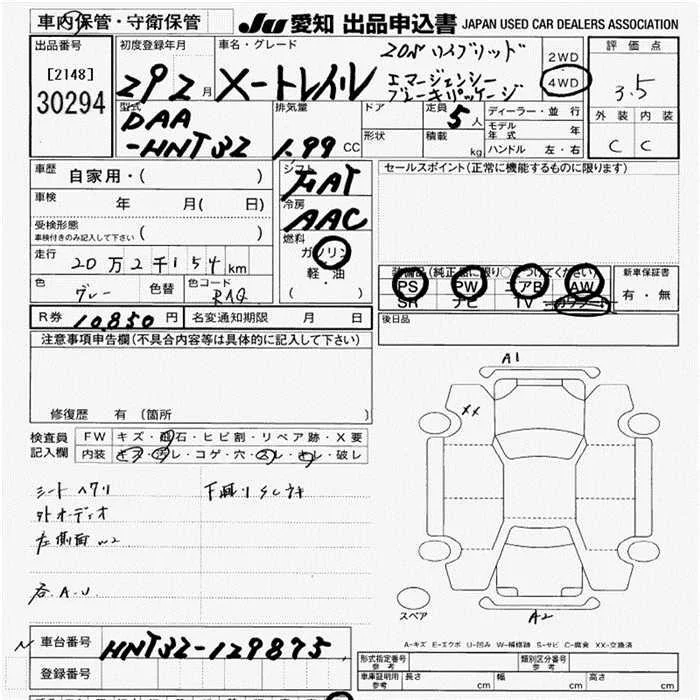 車内保管・守衛保管
JU 愛知 出品申込書 JAPAN USED CAR DEALERS ASSOCIATION
出品番号
[2148]
30294
初度登録年月
29 2 月
車名・グレード
X-トレイル
20X ハイブリッド
エマージェンシー
ブレーキパッケージ
2WD
4WD
評価点
3.5
外装 内装
C C
型式
DAA
-HNT32
排気量
1.99 CC
ドア
形状
定員
5 人
積載
kg
ディーラー・並行
モデル年式 年
ハンドル 左・右
車歴
自家用・( )
車検
年 月( 日)
受検形態
車検付きのみ記入して下さい ( )
走行
20万2千154km
色
グレー
色替
色コード
シフト
AT
冷房
AAC
燃料
ガソリン
軽・油
( )
セールスポイント(正常に機能するものに限ります)
装備品(純正品に限り○をつけてください)
PS PW エアB AW
SR ナビ TV
新車保証書
有・無
R券 10,850 円
名変通知期限 月 日
後日品
注意事項申告欄(不具合内容等は具体的に記入して下さい)
修復歴 有 (箇所 )
検査員
記入欄
FW キズ・飛石・ヒビ割・リペア跡・X要
内装 キズ・汚レ・コゲ・穴・スレ・キレ・破レ
シートヘタリ
下廻りサビ
外オーディオ
左側面w2
各A.U
A1
XX
スペア
A2
A-キズ E-エクボ U-凹み W-補修跡 S-サビ C-腐食 XX-交換済
車台番号
HNT32-129875
登録番号
形式指定番号
参考
類別区分番号
参考
車庫証明用
参考
長さ cm
幅 cm
高さ cm